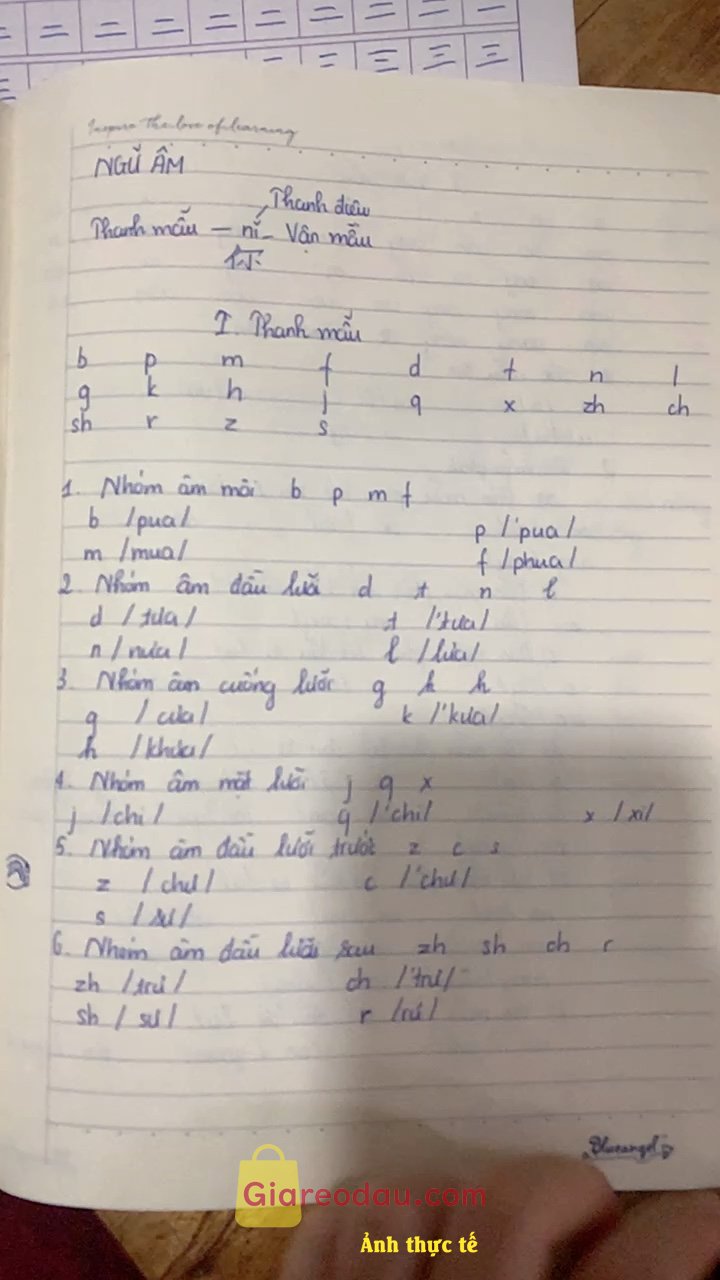 二 二 二 二 二 二 二 二 一
三 三 三 三 三
Inspire The love of learning
NGỮ ÂM
Thanh điệu
Thanh mẫu — nǐ — Vận mẫu
你
I. Thanh mẫu
b p m f d t n l
g k h j q x zh ch
sh r z s
1. Nhóm âm môi b p m f
b /pua/ p /'pua/
m /mua/ f /phua/
2. Nhóm âm đầu lưỡi d t n l
d /tưa/ t /'tưa/
n /nưa/ l /lưa/
3. Nhóm âm cuống lưỡi g k h
g /cưa/ k /'kưa/
h /khưa/
4. Nhóm âm mặt lưỡi j q x
j /chi/ q /'chi/ x /xi/
5. Nhóm âm đầu lưỡi trước z c s
z /chư/ c /'chư/
s /sư/
6. Nhóm âm đầu lưỡi sau zh sh ch r
zh /trư/ ch /'trư/
sh /sư/ r /rư/
Blueangel
Giareodau.com
Ảnh thực tế